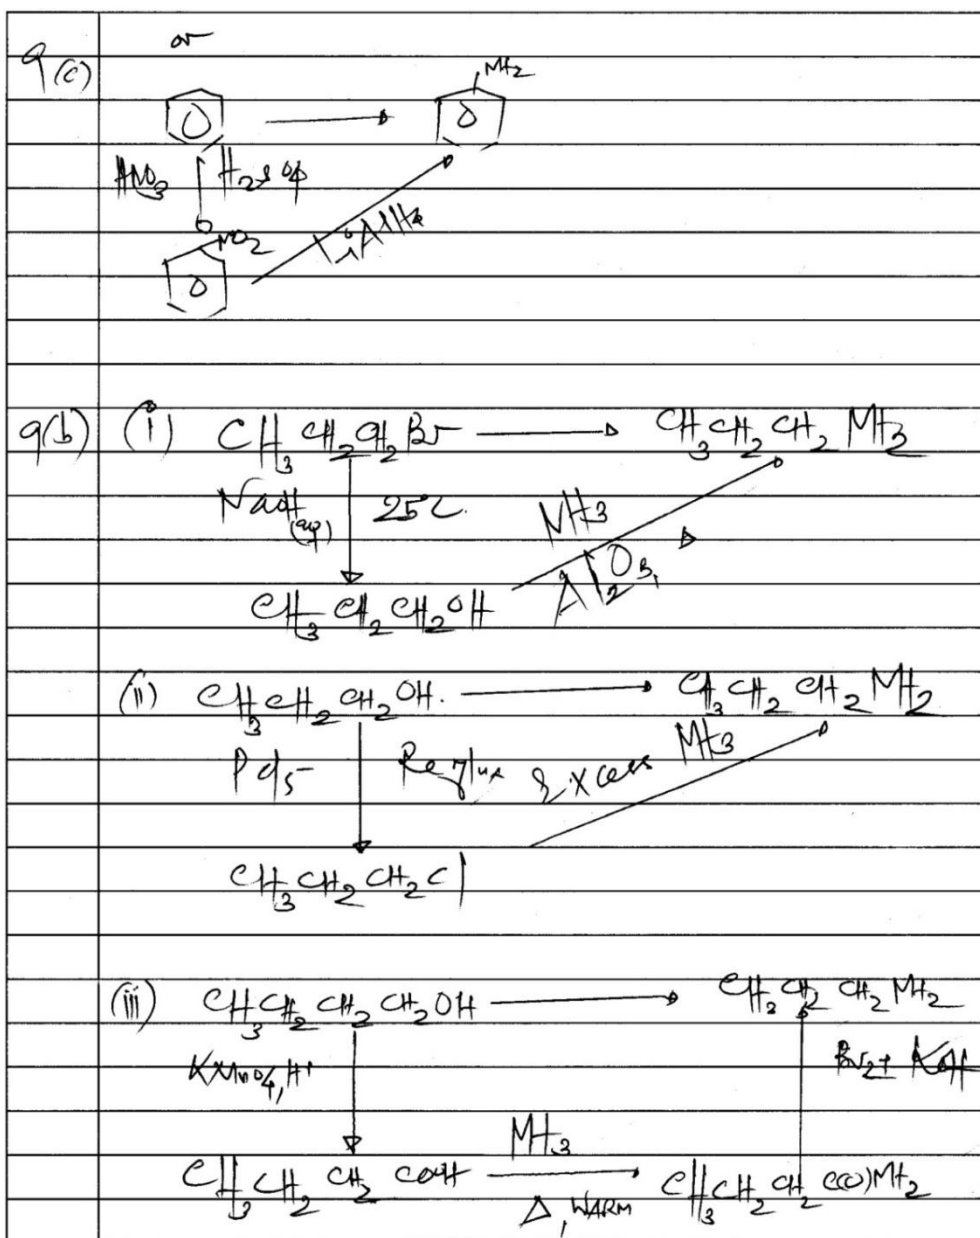 or
9(c)
NH2
HNO3 H2SO4
NO2
LiAlH4
9(b) (i) CH3CH2CH2Br CH3CH2CH2NH3
NaOH (aq) 25C. NH3
Al2O3, Δ
CH3CH2CH2OH
(ii) CH3CH2CH2OH. CH3CH2CH2NH2
PCl5 Reflux Excess NH3
CH3CH2CH2Cl
(iii) CH3CH2CH2CH2OH CH3CH2CH2NH2
KMnO4, H+ Br2+ KOH
NH3
CH3CH2CH2COOH CH3CH2CH2C(O)NH2
Δ, WARM